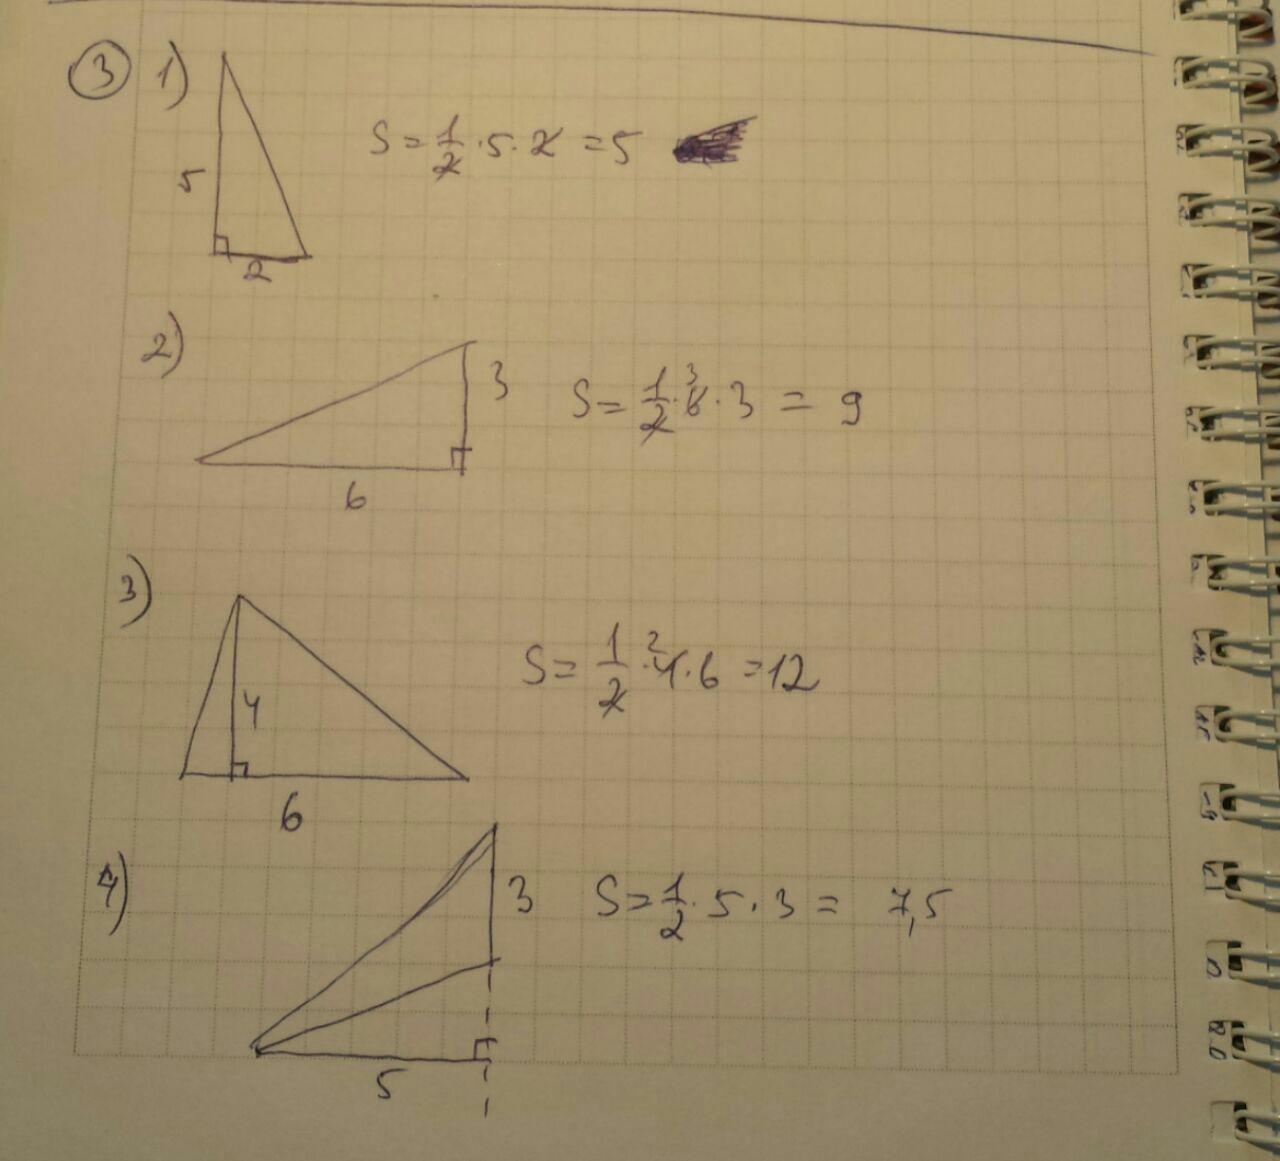 ③ 1)
5
2
S = 1/2 · 5 · 2 = 5
2)
3
6
S = 1/2 · 6 3 · 3 = 9
3)
4
6
S = 1/2 · 4 2 · 6 = 12
4)
3
5
S = 1/2 · 5 · 3 = 7,5